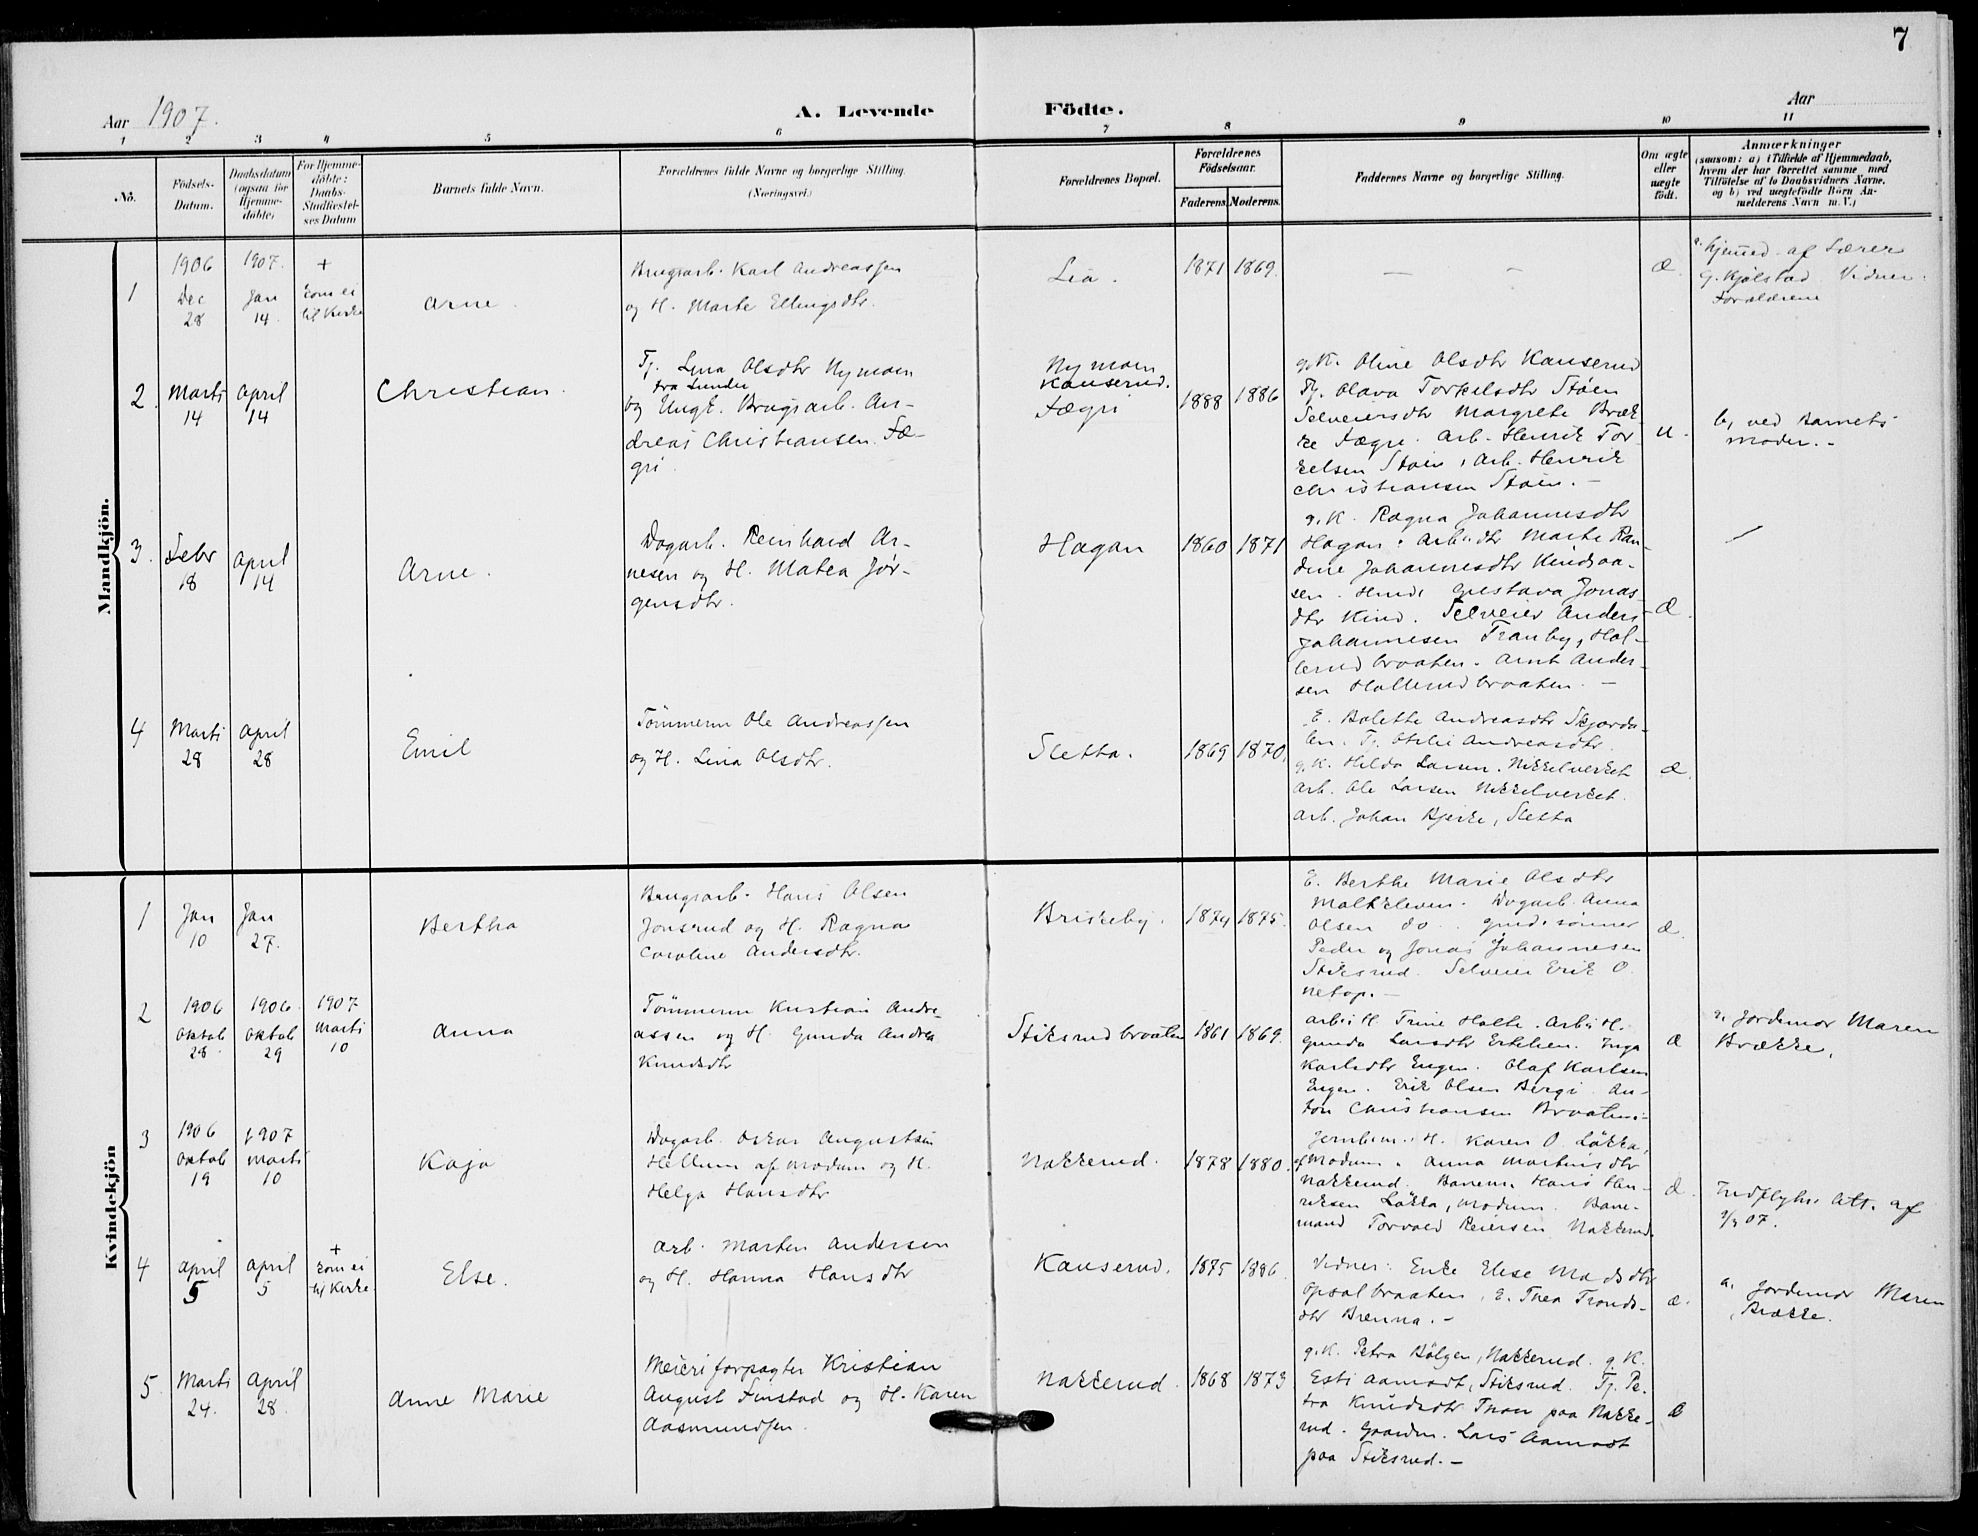 7
Aar 1907.
A. Levende Födte.
Aar
1 2 3 4 5 6 7 8 9 10 11
No.
Födsels-
Datum.
Daabsdatum
(ogsaa for
Hjemme-
döbte)
For Hjemme-
döbte:
Daabs-
Stadfæstel-
ses Datum
Barnets fulde Navn.
Forældrenes fulde Navne og borgerlige Stilling.
(Næringsvei.)
Forældrenes Bopæl.
Forældrenes
Födselsaar.
Faderens Moderens.
Faddernes Navne og borgerlige Stilling.
Om ægte
eller
uægte
födt.
Anmærkninger
(saasom: a) i Tilfælde af Hjemmedaab,
hvem der har forrettet samme, med
Tilföielse af to Daabsvidners Navne,
og b) ved uægtefödte Börn An-
melderens Navn m. V.)
Mandkjön.
1
1906
Dec
28
1907.
Jan
14.
+
kom ei
til Kirke
Arne.
Brugsarb. Karl Andreassen
og H. Marte Ellingsdtr.
Lia.
1871 1869.
— —
Æ.
a. hjemmed. af Lærer
G. Kjølstad. Vidner.
Forældrene
2.
Marts
14
April
14
Christian.
Tj. Lina Olsdtr Nymoen
fra Lunder
og Ungk. Brugsarb. An-
dreas Christiansen Fæ-
gri.
Nymoen
Kanserud.
Fægri
1888 1886
g.K. Oline Olsdtr Kanserud
Tj. Olava Torkelsdtr Støen
Selveiersdtr Margrethe Bræk-
ke Fægri. Arb. Henrik Tor-
kelsen Støen, Arb. Henrik
Christiansen Støen. –
u.
b, ved Barnets
Moder. –
3.
Febr
18
April
14
Arne.
Dagarb. Reinhard Ar-
nesen og H. Matea Jør-
gensdtr.
Hagan
1860 1871
g.K. Ragna Johannesdtr
Hagan. Arb.dtr Marte Ran-
dine Johannesdtr Kindsaa-
sen. Gustava Jonas
dtr Kind. Selveier Anders
Johannesen Tranby, Hol-
lerudbraaten. Arnt Ander-
sen Hollerudbraaten. —
Æ.
4
Marts
28
April
28
Emil
Tømmerm Ole Andreassen
og H. Lina Olsdtr.
Sletta.
1869 1870.
E. Bolette Andreasdtr Skjærda-
len. Tj. Otilie Andreasdtr.
g.K. Hilda Larsen. Nikkelverket
Arb. Ole Larsen Nikkelverket.
Arb. Johan Bjerke, Sletta
Æ.
Kvindekjön
1
Jan
10
Jan
27.
Bertha
Brugsarb. Hans Olsen
Jonsrud og H. Ragna
Caroline Andersdtr.
Briskeby.
1874 1875.
E. Berthe Marie Olsdtr
Moltkleven. Dagarb. Anna
Olsen do. gmd.sønner
Peder og Jonas Johannesen
Stiksrud. Selveier Erik O.
Netop. –
Æ.
2
1906
Oktob
28
1906
Oktob
29
1907
Marts
10
Anna
Tømmerm Kristian Andre-
assen og H. Gunda Andrea
Knudsdtr
Stiksrudbraaten
1861 1869.
Arb.s H. Trine Holte. Arb.s H.
Gunda Larsdtr Eriklien. Inga
Karlsdtr Engen. Olaf Karlsen
Engen. Erik Olsen Berg. An-
ton Christiansen Braaten.
Æ
a. Jordemor Maren
Brække.
3
1906
Oktob
19
1907
Marts
10
Kaja
Dagarb. Oskar Augustsen
Hellum af Modum og H.
Helga Hansdtr
Nakkerud.
1878 1880.
H. Karen O. Løkka,
af Modum. Anna Martinsdtr
Nakkerud. Banem. Hans Hen-
riksen Løkka, Modum. Bane-
mand Torvald Reiersen Nakkerud.
Æ.
Indflytn. Att. af
07.
4
April
5
April
5
+
kom ei
til Kirke
Else.
Arb. Marten Andersen
og H. Hanna Hansdtr
Kanserud.
1875 1886
Vidner: Enke Elise Madsdtr
Opsalbraaten, E. Thea Tronds-
dtr Brenna. –
Æ.
a. Jordemor Maren
Brække.
5.
Marts
24.
April
28.
Anne Marie
Meieriforpagter Kristian
August Finstad og H. Karen
Aasmundsen.
Nakkerud.
1868 1873
g.K. Petra Bølgen, Nakkerud. g.K.
Esti Aamodt, Stiksrud. Tj. Pe-
tra Knudsdtr Thon paa Nakke-
rud. Gaardm. Lars Aamodt
paa Stiksrud. –
Æ